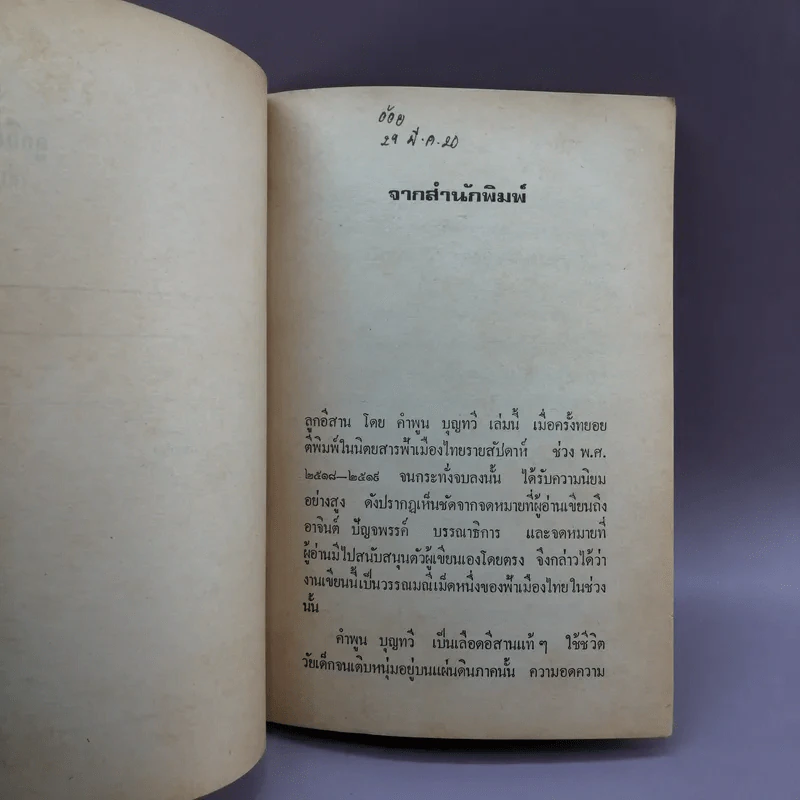 อ้อย
29 มี.ค.20
จากสำนักพิมพ์
ลูกอีสาน โดย คำพูน บุญทวี เล่มนี้ เมื่อครั้งทยอย
ตีพิมพ์ในนิตยสารฟ้าเมืองไทยรายสัปดาห์ ช่วง พ.ศ.
๒๕๑๘—๒๕๑๙ จนกระทั่งจบลงนั้น ได้รับความนิยม
อย่างสูง ดังปรากฏเห็นชัดจากจดหมายที่ผู้อ่านเขียนถึง
อาจินต์ ปัญจพรรค์ บรรณาธิการ และจดหมายที่
ผู้อ่านมีไปสนับสนุนตัวผู้เขียนเองโดยตรง จึงกล่าวได้ว่า
งานเขียนนี้เป็นวรรณมณีเม็ดหนึ่งของฟ้าเมืองไทยในช่วง
นั้น
คำพูน บุญทวี เป็นเลือดอีสานแท้ ๆ ใช้ชีวิต
วัยเด็กจนเติบหนุ่มอยู่บนแผ่นดินภาคนั้น ความอดความ